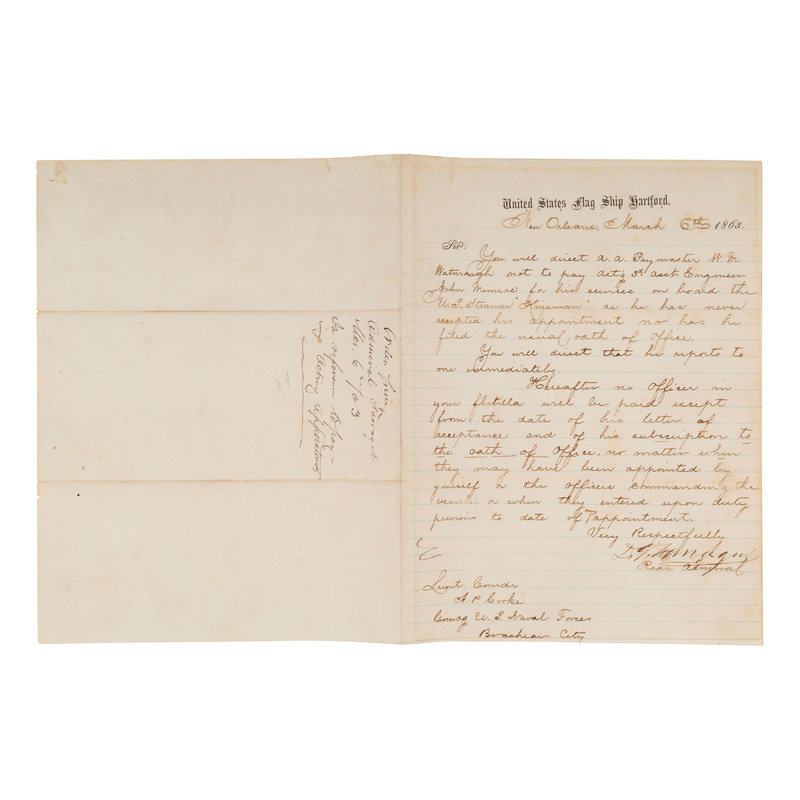 United States Flag Ship Hartford,
New Orleans, March 6th 1863.
Sir:
You will direct A. A. Paymaster W. M
Watmough not to pay Actg 3d asst Engineer
John for his services on board the
U.S. Steamer " " as he has never
accepted his appointment nor has he
filed the usual oath of office.
You will direct that he reports to
me immediately.
Hereafter no Officer in
your flotilla will be paid except
from the date of his letter of
acceptance and of his subscription to
the oath of Office, no matter when
they may have been appointed by
yourself or the officers commanding the
vessels, or when they entered upon duty
previous to date of appointment.
Very Respectfully
D. G. Farragut
Rear Admiral
Lieut. Comdr
A. P. Cooke
Comdg U. S. Naval Forces
Brashear City
Order from
Admiral Farragut
Mar. 6
In reference to pay-
ing Acting appointments